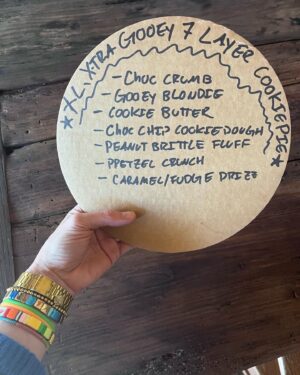 ★XL XTRA GOOEY 7 LAYER COOKIEPIE★
- CHOC CRUMB
- GOOEY BLONDIE
- COOKIE BUTTER
- CHOC CHIP COOKIEDOUGH
- PEANUT BRITTLE FLUFF
- PRETZEL CRUNCH
- CARAMEL/FUDGE DRIZE